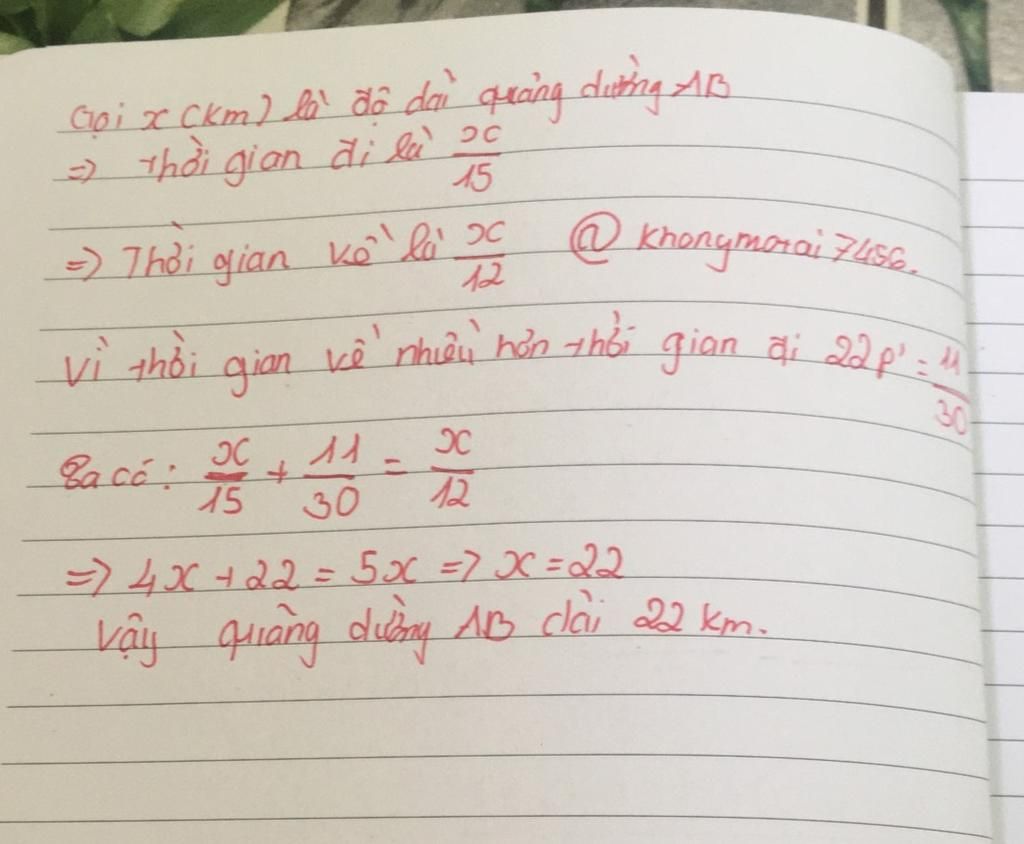 Gọi x (km) là độ dài quảng đường AB
=> thời gian đi là x/15
=> Thời gian về là x/12 @khongmorai7456.
Vì thời gian về nhiều hơn thời gian đi 22p' = 11/30
Ta có: x/15 + 11/30 = x/12
=> 4x + 22 = 5x => x = 22
Vậy quảng đường AB dài 22 km.